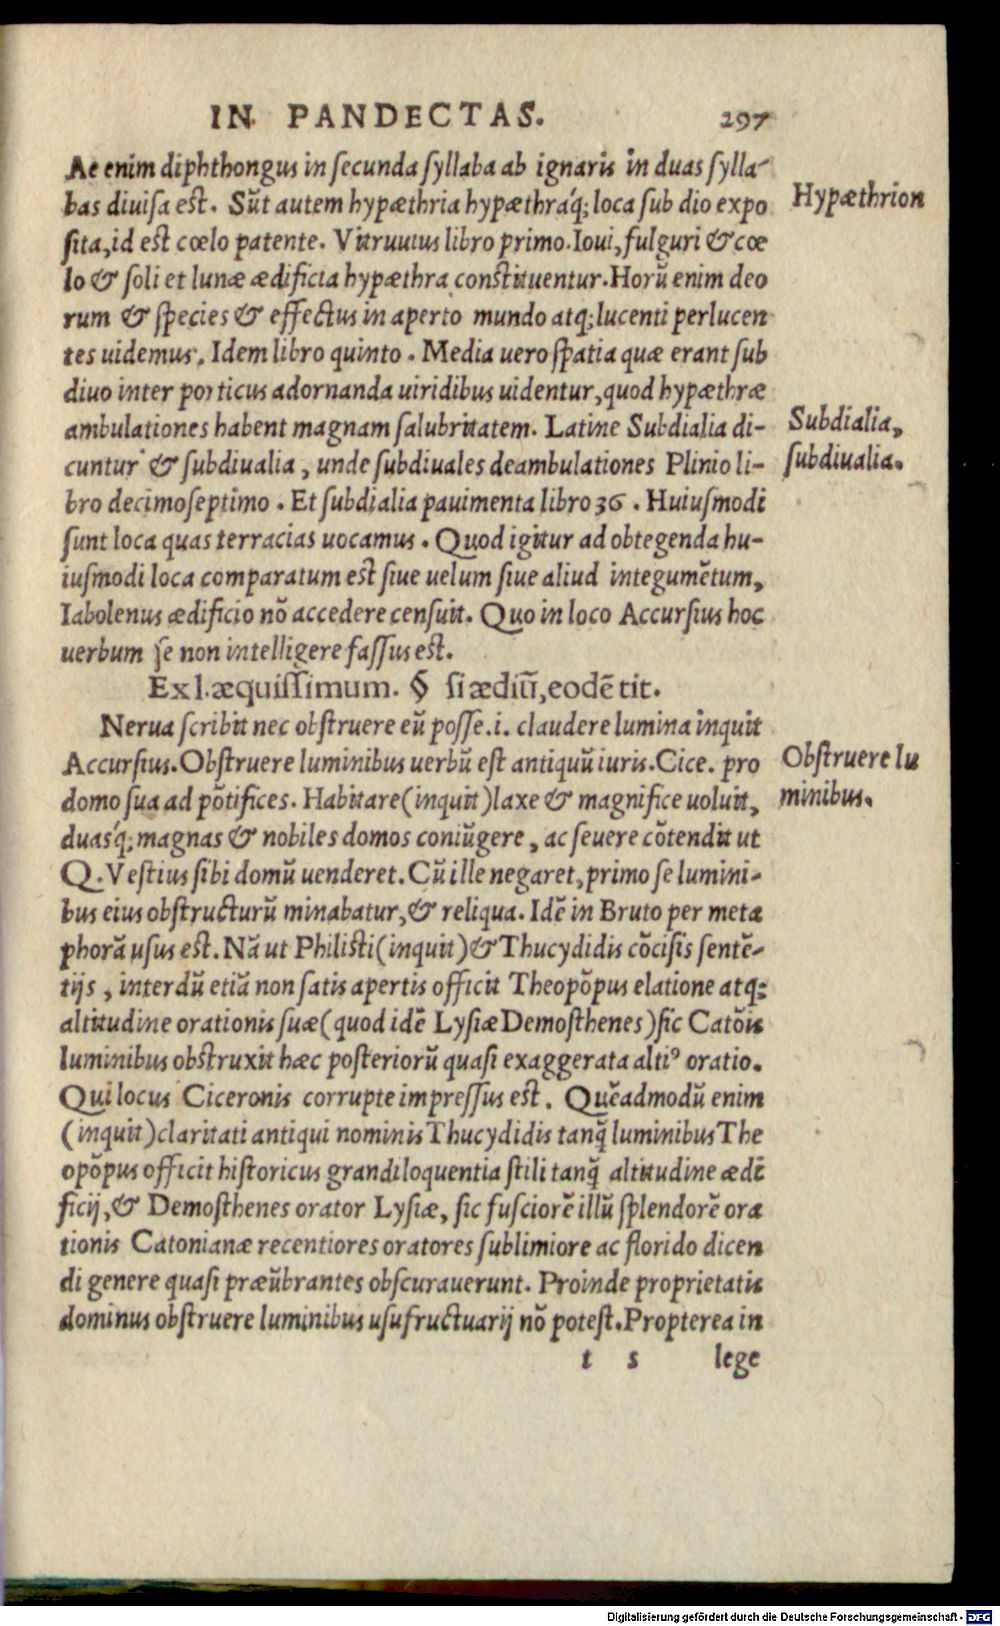 IN PANDECTAS. 297
Ae enim diphthongus in ſecunda ſyllaba ab ignaris in duas ſylla-
bas diuiſa eſt. Sūt autem hypæthria hypæthráq; loca ſub dio expo
ſita, id eſt cœlo patente. Vitruuius libro primo. Ioui, fulguri & cœ
lo & ſoli et lunæ ædificta hypæthra conſtituentur. Horū enim deo
rum & ſpecies & effectus in aperto mundo atq; lucenti perlucen
tes uidemus. Idem libro quinto. Media uero ſpatia quæ erant ſub
diuo inter porticus adornanda uiridibus uidentur, quod hypæthræ
ambulationes habent magnam ſalubritatem. Latine Subdialia di-
cuntur & ſubdiualia, unde ſubdiuales deambulationes Plinio li-
bro decimoſeptimo. Et ſubdialia pauimenta libro 36. Huiuſmodi
ſunt loca quas terracias uocamus. Quod igitur ad obtegenda hu-
iuſmodi loca comparatum eſt ſiue uelum ſiue aliud integumētum,
Iabolenus ædificio nō accedere cenſuit. Quo in loco Accurſius hoc
uerbum ſe non intelligere faſſus eſt.
Hypæthrion
Subdialia,
ſubdiualia.
Ex l. æquiſſimum. § ſi ædiū, eodē tit.
Nerua ſcribit nec obſtruere eū poſſe .i. claudere lumina inquit
Accurſius. Obſtruere luminibus uerbū eſt antiquū iuris. Cice. pro
domo ſua ad pōtifices. Habitare (inquit) laxe & magnifice uoluit,
duasq́; magnas & nobiles domos coniūgere, ac ſeuere cōtendit ut
Q. Veſtius ſibi domū uenderet. Cū ille negaret, primo ſe lumini-
bus eius obſtructurū minabatur, & reliqua. Idē in Bruto per meta
phorā uſus eſt. Nā ut Philiſti (inquit) & Thucydidis cōciſis ſentē-
tijs, interdū etiā non ſatis apertis officit Theopōpus elatione atq;
altitudine orationis ſuæ (quod idē Lyſiæ Demoſthenes) ſic Catōis
luminibus obſtruxit hæc poſteriorū quaſi exaggerata altiꝰ oratio.
Qui locus Ciceronis corrupte impreſſus eſt. Quēadmodū enim
(inquit) claritati antiqui nominis Thucydidis tanq̄ luminibus The
opōpus officit hiſtoricus grandiloquentia ſtili tanq̄ altitudine ædi
ficij, & Demoſthenes orator Lyſiæ, ſic fuſciorē illū ſplendorē ora
tionis Catonianæ recentiores oratores ſublimiore ac florido dicen
di genere quaſi præūbrantes obſcurauerunt. Proinde proprietatis
dominus obſtruere luminibus uſufructuarij nō poteſt. Propterea in
Obſtruere lu
minibus.
t s lege
Digitalisierung gefördert durch die Deutsche Forschungsgemeinschaft - DFG